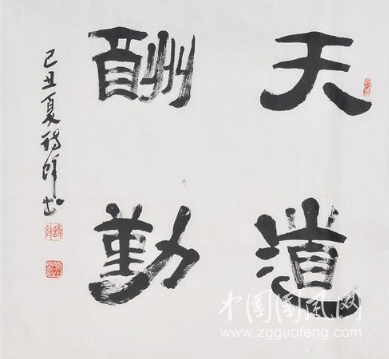 天道
酬勤
己丑夏
中国国风网
www.zgguofeng.com